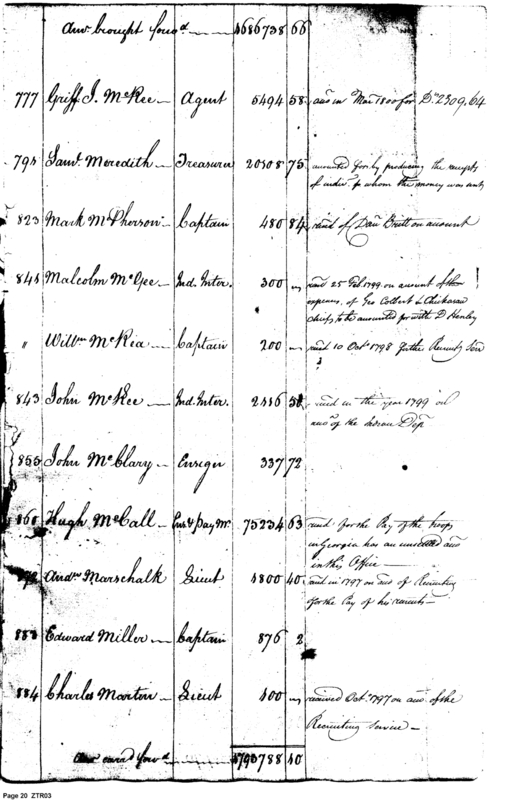 Amt. brought forwd. 4686738 66
777 Griff J. McRee Agent 5494 58 amt in Mar 1800 for Drs 2309.64
795 Saml. Meredith Treasurer 20508 75 accounted for by producing the receipts
of indivs. to whom the money was sent
823 Mark McPherson Captain 480 84 recd of Danl Britt on account
841 Malcolm McGee Ind. Inter. 300 recd 25 Feb 1799 on amount of
expences of Geo Colbert & Chickasaw
chiefs to be accounted for with D Henley
" Willm McRea Captain 200 recd 10 Octr 1798 for the Recruitg Ser
843 John McKee Ind. Inter. recd in the year 1799 on
acct of the Indian Dept
855 John McClary Ensign 337 72
860 Hugh McCall Ens & Pay Mr. 75234 63 recd for the Pay of the troops
in Georgia has an unsettled acct
in this Office
872 Andw Marschalk Lieut 1800 40 recd in 1797 on acct of Recruiting
& for the Pay of his recruits
883 Edward Miller Captain 876 2
884 Charles Marten Lieut 400 received Octr 1797 on acct. of the
Recruiting Service
Amt carrd forwd. 4793788 40
Page 20 ZTR03